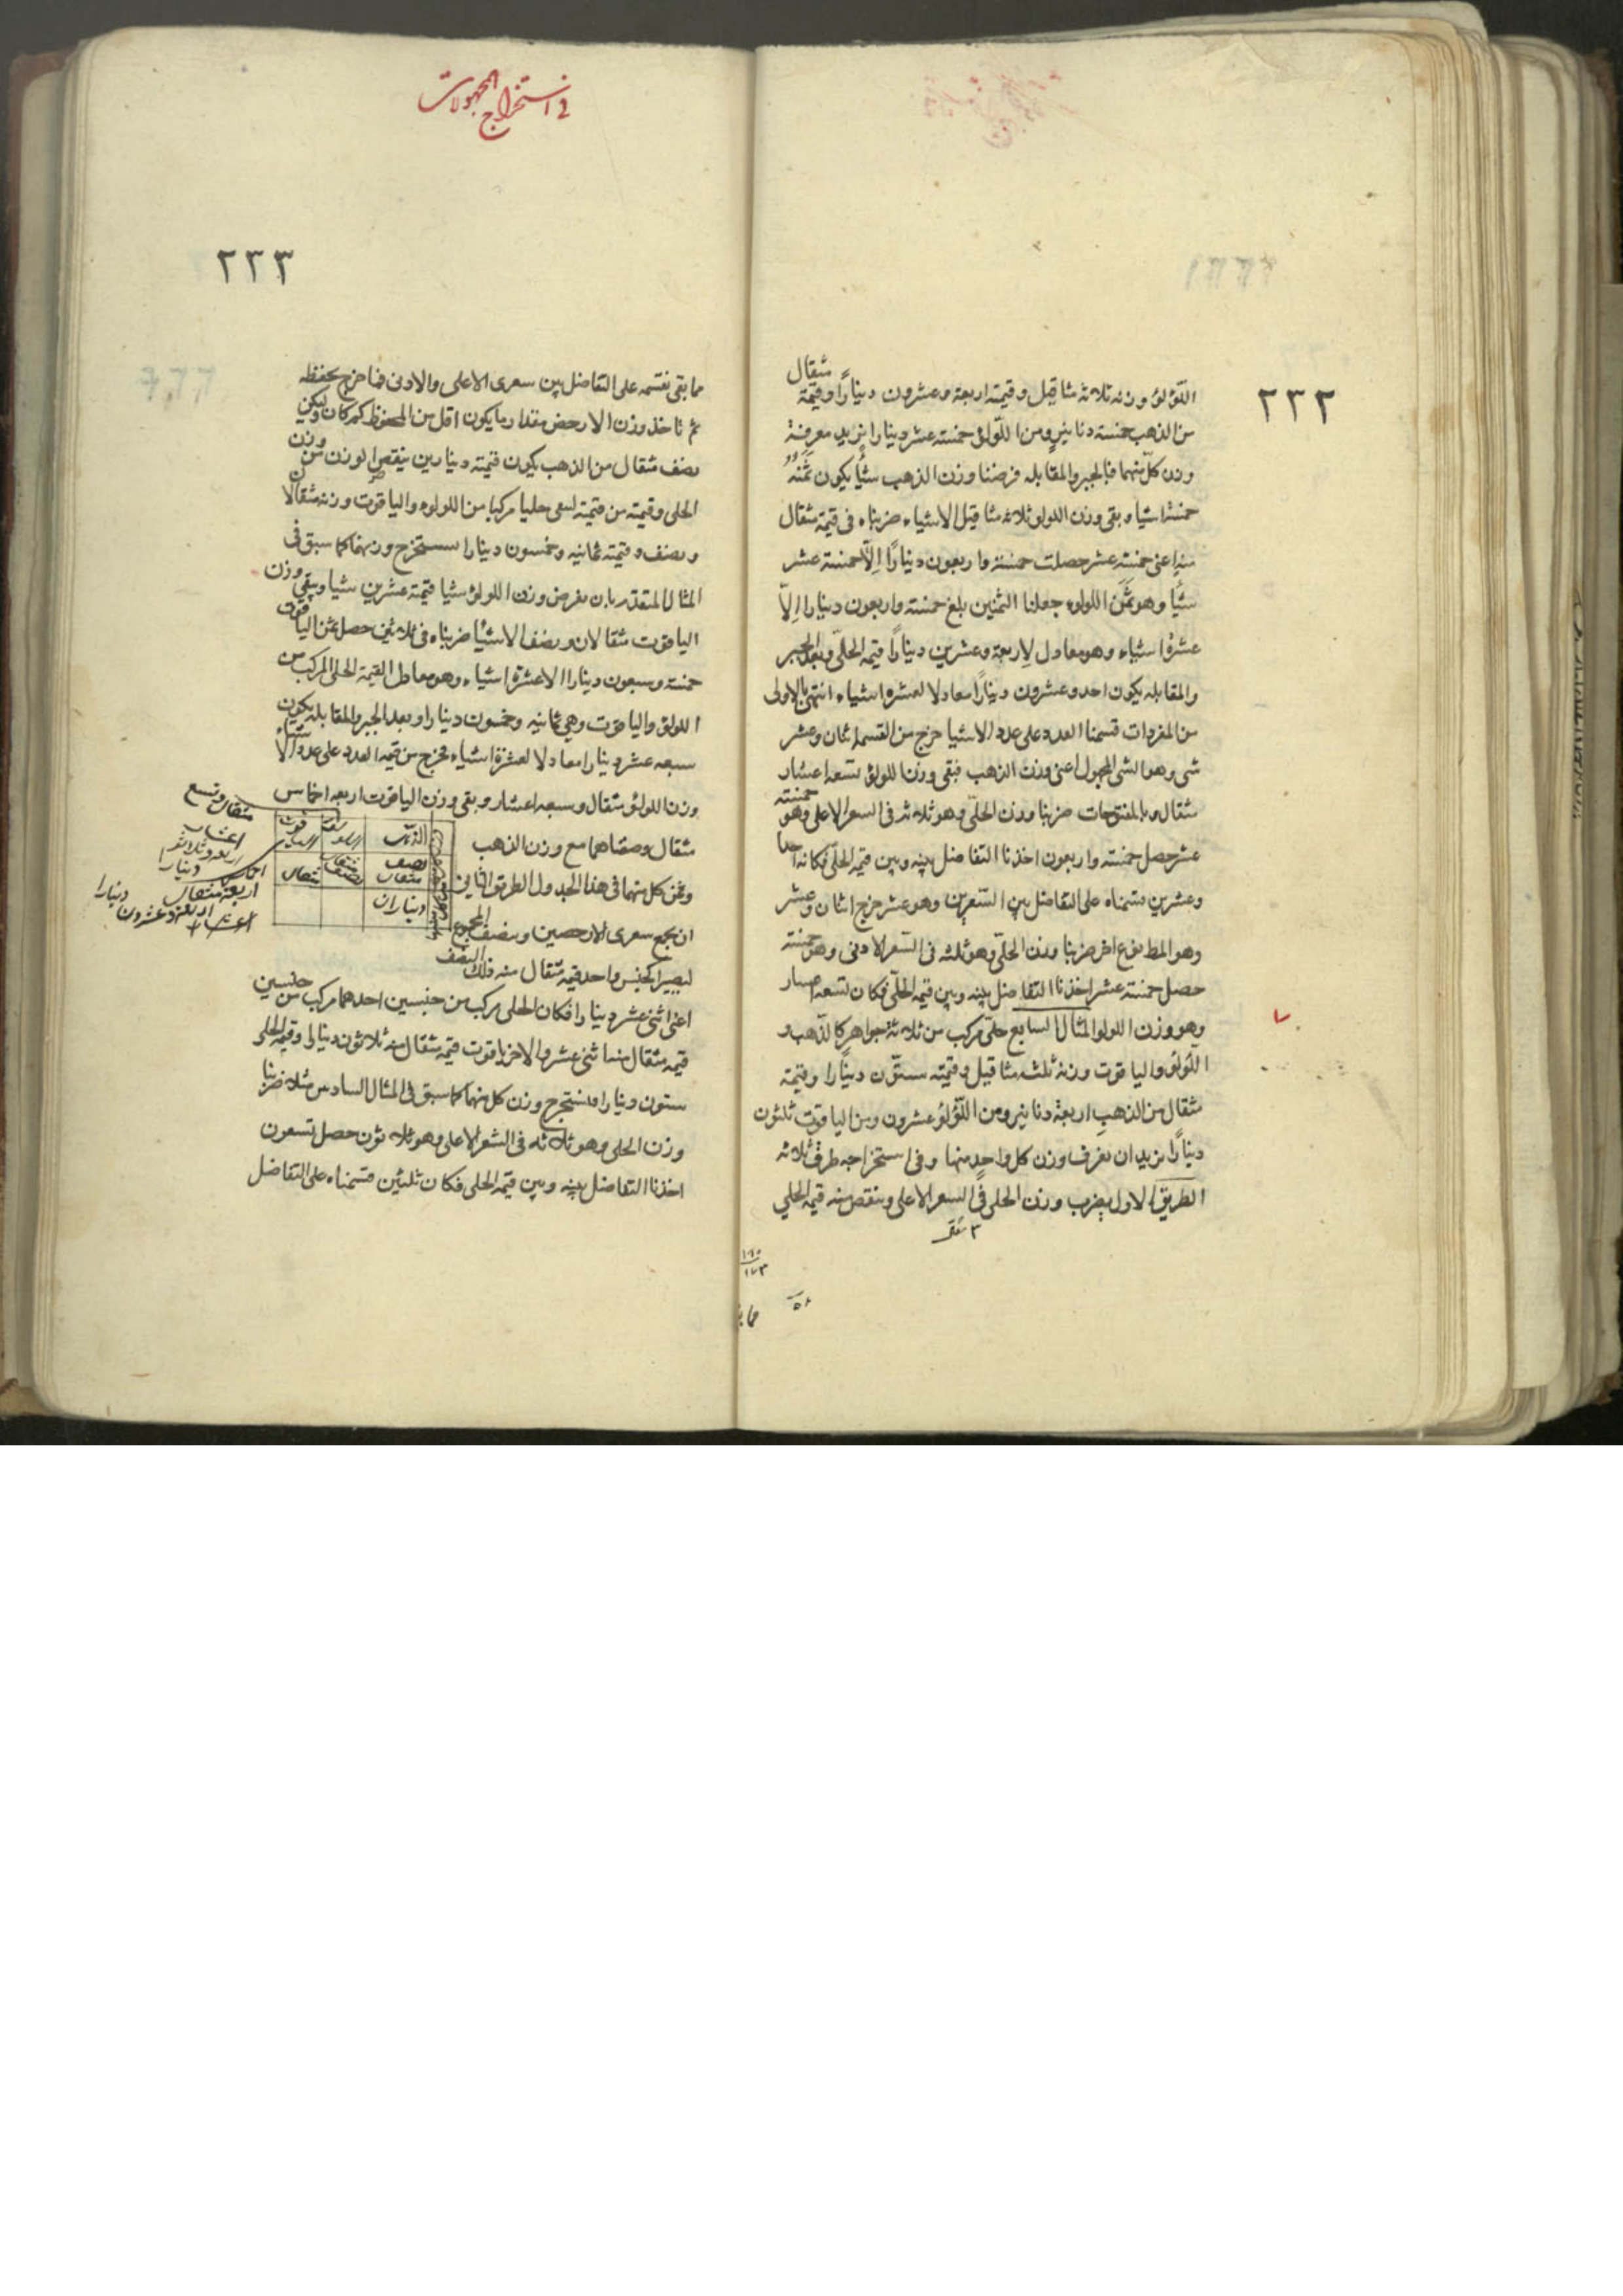 ٢٣٢
اللؤلؤ وزنه ثلاثة مثاقيل وقيمته اربعة وعشرون دينارًا وقيمة مثقال
من الذهب خمسة دنانير ومن اللؤلؤ خمسة عشر دينارا نريد معرفة
وزن كل منهما فبالجبر والمقابله فرضنا وزن الذهب شيأ يكون ثمنه
خمسة اشيا وبقى وزن اللولو ثلاثة مثاقيل الا شياء ضربناه فى قيمة مثقال
منه اعنى خمسة عشر حصلت خمسة واربعون دينارًا الّا خمسة عشر
شيأ وهو ثمن اللولوء جعلنا الثمنين بلغ خمسة واربعون دينارا الّا
عشرة اشياء وهو معادل لاربعة وعشرين دينارًا قيمة الحلّى وبعد الجبر
والمقابله يكون احد وعشرون دينارًا معادلا لعشرة اشياء انتهى بالاولى
من المفردات قسمنا العدد على عدد الاشيا خرج من القسمة اثنان وعشر
شى وهو الشى المجهول اعنى وزن الذهب فبقى وزن اللولؤ تسعة اعشار
مثقال وبالمفتوحات ضربنا وزن الحلّى وهو ثلاثة فى السعر الاعلى وهو خمسة
عشر حصل خمسة واربعون اخذنا التفاضل بينه وبين قيمة الحلّى فكانه احدا
وعشرين قسمناه على التفاضل بين السعرين وهو عشر خرج اثنان وعشر
وهو المط نوع اخر ضربنا وزن الحلّى وهو ثلثه فى السعر الادنى وهو خمسة
حصل خمسة عشر اخذنا التفاضل بينه وبين قيمة الحلّى فكان تسعة اعشار
وهو وزن اللولو المثال السابع حلّى مركب من ثلاثة جواهر كالذهب و
اللؤلؤ والياقوت وزنه ثلثة مثاقيل وقيمته ستّون دينارا وقيمة
مثقال من الذهب اربعة دنانير ومن اللؤلؤ عشرون ومن الياقوت ثلثون
دينارًا نريد ان نعرف وزن كل واحد منها وفى استخراجه طرق ثلاثة
الطريق الاول يضرب وزن الحلى فى السعر الاعلى وينقص منه قيمة الحلي
فى استخراج المجهولات
٢٣٣
مما بقى نقسمه على التفاضل بين سعرى الاعلى والادنى فما خرج نحفظه
ثم ناخذ وزن الارخص مقدار ما يكون اقل من المحفوظ كم كان وليكن
نصف مثقال من الذهب يكون قيمته دينارين ينقص الوزن من وزن
الحلى وقيمته من قيمته لبقى حليا مركبا من اللولوء والياقوت وزنه مثقالان
ونصف وقيمته ثمانيه وخمسون دينارا سنستخرج وزنهما كما سبق فى
المثال المتقدم بان نفرض وزن اللولؤ شيا قيمته عشرين شيا ويبقى وزن
الياقوت مثقالان ونصف الا شيأ ضربناه فى ثلاثين حصل ثمن الياقوت
خمسة وسبعون دينارا الا عشرة اشياء وهو معادل القيمة الحلى المركب من
اللولؤ والياقوت وهي ثمانيه وخمسون دينارا وبعد الجبر والمقابلة يكون
سبعه عشر دينارا معادلا لعشرة اشياء فخرج من قسمة العدد على عدد الاشياء
وزن اللولؤ مثقال وسبعه اعشار وبقى وزن الياقوت اربعه اخماس
مثقال وضعناهما مع وزن الذهب
وثمن كل منهما فى هذا الجدول الطريق الثانى
ان نجمع سعرى الارخصين وننصف المجموع
ليصير الجنس واحد قيمة مثقال منه ذلك النصف
الذهب
نصف مثقال
ديناران
اعنى اثنى عشر دينارا فكان الحلى مركب من جنسين احدهما مركب من جنسين
قيمة مثقال منها اثنى عشر والاخر ياقوت قيمة مثقال منه ثلاثون دينارا وقيمة الحلى
ستون دينارا فنستخرج وزن كل منهما كما سبق فى المثال السادس مثلا ضربنا
وزن الحلى وهو ثلاثه فى السعر الاعلى وهو ثلاثون حصل تسعون
اخذنا التفاضل بينه وبين قيمة الحلى فكان ثلثين قسمناه على التفاضل